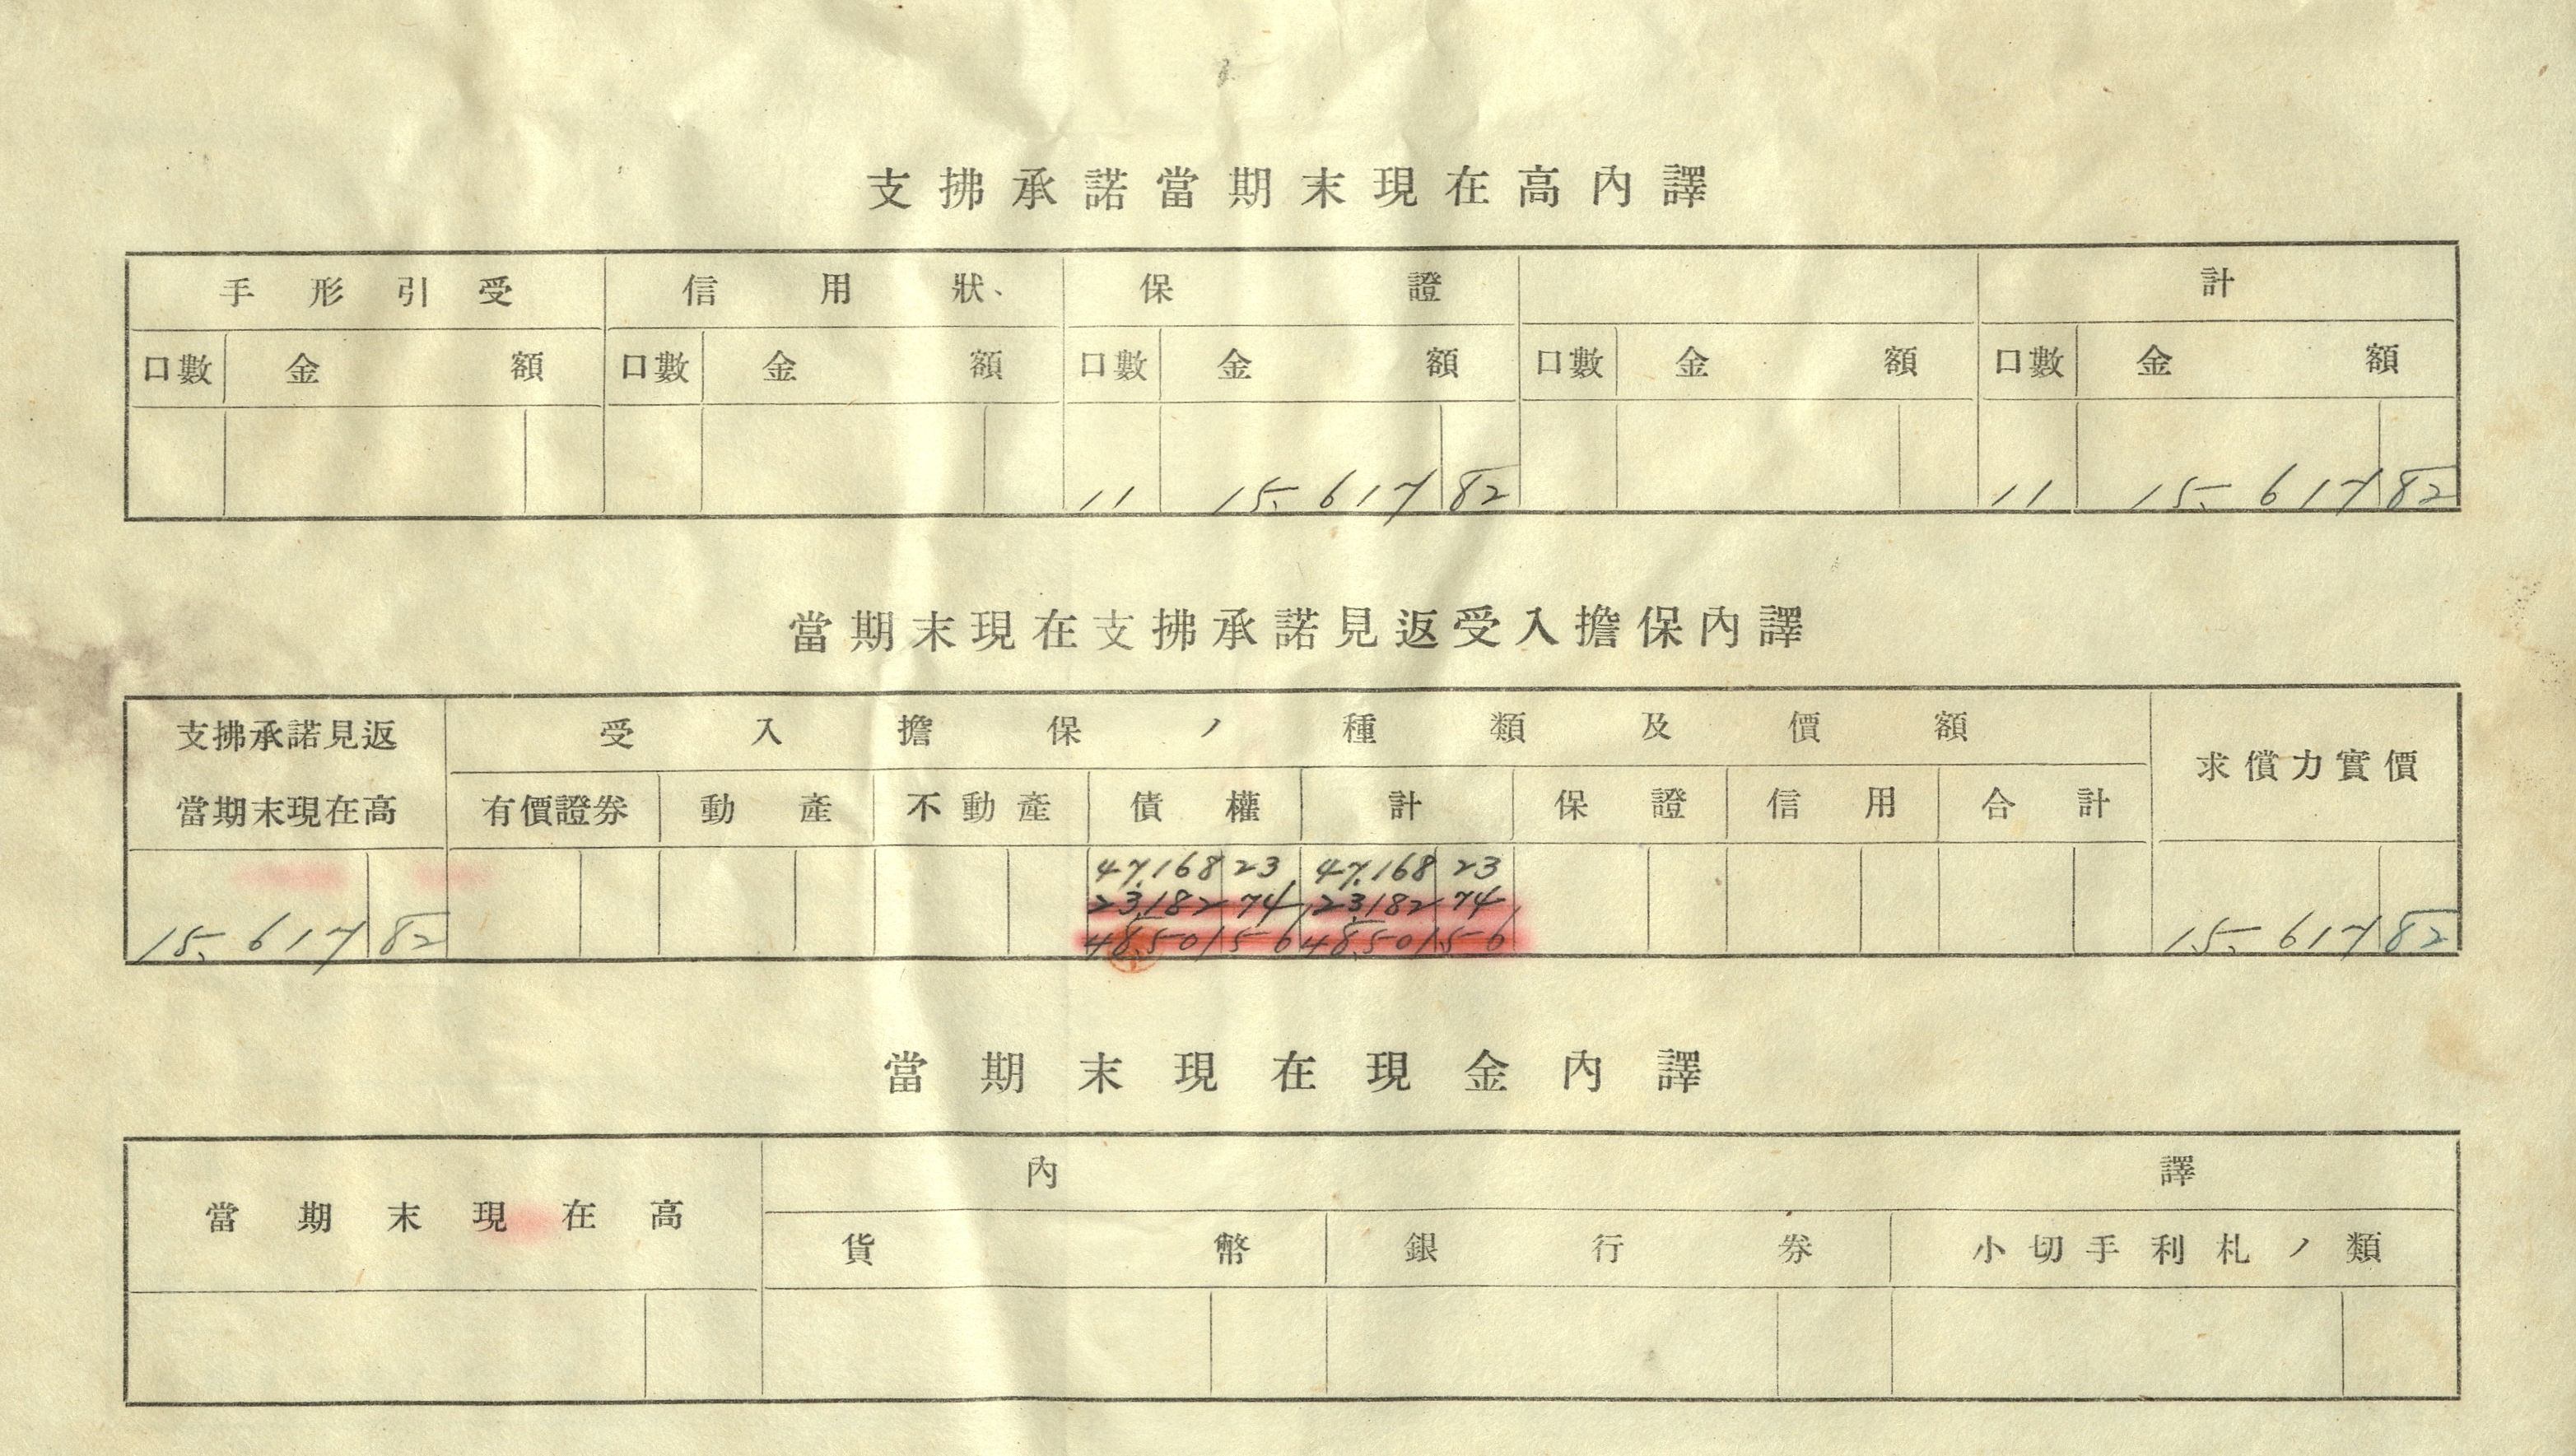 支拂承諾當期末現在高內譯
手形引受 信用狀 保證 計
口數 金額 口數 金額 口數 金額 口數 金額 口數 金額
11 15,617 82 11 15,617 82
當期末現在支拂承諾見返受入擔保內譯
支拂承諾見返 受入擔保ノ種類及價額 求償力實價
當期末現在高 有價證券 動產 不動產 債權 計 保證 信用 合計
47,168 23 47,168 23
23,182 74 23,182 74
15,617 82 48,501 56 48,501 56 15,617 82
當期末現在現金內譯
當期末現在高 內譯
貨幣 銀行券 小切手利札ノ類